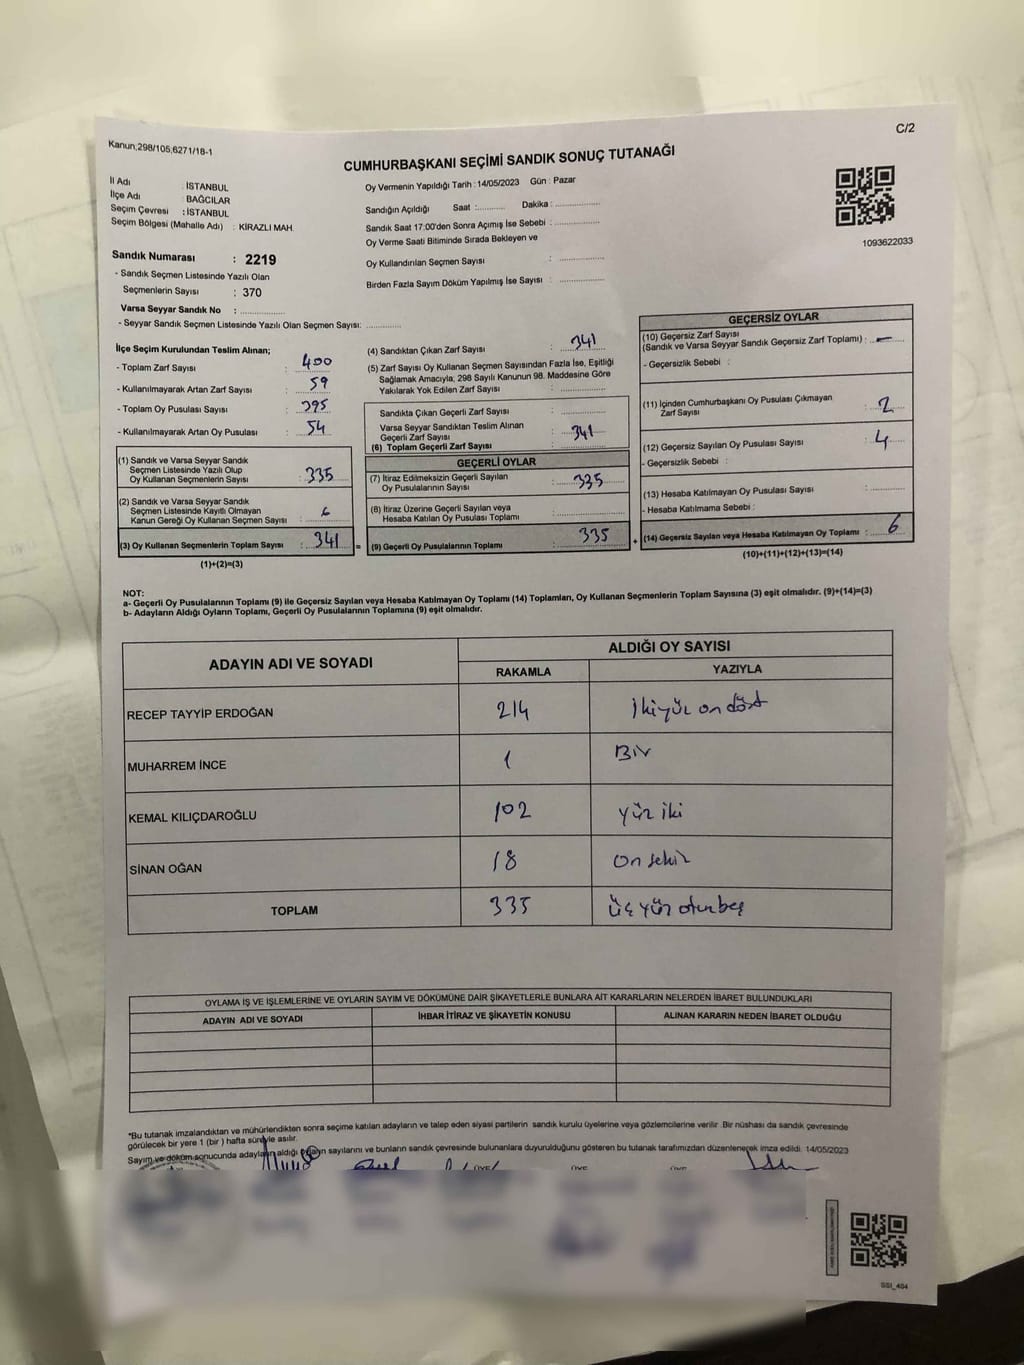 Kanun,298/105,6271/18-1
C/2
CUMHURBAŞKANI SEÇİMİ SANDIK SONUÇ TUTANAĞI
İl Adı : İSTANBUL
İlçe Adı : BAĞCILAR
Seçim Çevresi : İSTANBUL
Seçim Bölgesi (Mahalle Adı) : KİRAZLI MAH.
Sandık Numarası : 2219
- Sandık Seçmen Listesinde Yazılı Olan
Seçmenlerin Sayısı : 370
Varsa Seyyar Sandık No : ..............
- Seyyar Sandık Seçmen Listesinde Yazılı Olan Seçmen Sayısı: ............
Oy Vermenin Yapıldığı Tarih : 14/05/2023 Gün : Pazar
Sandığın Açıldığı Saat :......... Dakika : ...............
Sandık Saat 17:00'den Sonra Açımış İse Sebebi : ...............
Oy Verme Saati Bitiminde Sırada Bekleyen ve
Oy Kullandırılan Seçmen Sayısı : ...............
Birden Fazla Sayım Döküm Yapılmış İse Sayısı : ...............
1093622033
İlçe Seçim Kurulundan Teslim Alınan;
- Toplam Zarf Sayısı : 400
- Kullanılmayarak Artan Zarf Sayısı : 59
- Toplam Oy Pusulası Sayısı : 395
- Kullanılmayarak Artan Oy Pusulası : 54
(1) Sandık ve Varsa Seyyar Sandık
Seçmen Listesinde Yazılı Olup
Oy Kullanan Seçmenlerin Sayısı : 335
(2) Sandık ve Varsa Seyyar Sandık
Seçmen Listesinde Kayıtlı Olmayan
Kanun Gereği Oy Kullanan Seçmen Sayısı : 6
(3) Oy Kullanan Seçmenlerin Toplam Sayısı : 341 =
(1)+(2)=(3)
(4) Sandıktan Çıkan Zarf Sayısı : 341
(5) Zarf Sayısı Oy Kullanan Seçmen Sayısından Fazla İse, Eşitliği
Sağlamak Amacıyla, 298 Sayılı Kanunun 98. Maddesine Göre
Yakılarak Yok Edilen Zarf Sayısı : ...............
Sandıkta Çıkan Geçerli Zarf Sayısı : ...............
Varsa Seyyar Sandıktan Teslim Alınan
Geçerli Zarf Sayısı : 341
(6) Toplam Geçerli Zarf Sayısı
GEÇERLİ OYLAR
(7) İtiraz Edilmeksizin Geçerli Sayılan
Oy Pusulalarının Sayısı : 335
(8) İtiraz Üzerine Geçerli Sayılan veya
Hesaba Katılan Oy Pusulası Toplamı : ...............
(9) Geçerli Oy Pusulalarının Toplamı : 335 +
GEÇERSİZ OYLAR
(10) Geçersiz Zarf Sayısı
(Sandık ve Varsa Seyyar Sandık Geçersiz Zarf Toplamı) : —
- Geçersizlik Sebebi :
(11) İçinden Cumhurbaşkanı Oy Pusulası Çıkmayan
Zarf Sayısı : 2
(12) Geçersiz Sayılan Oy Pusulası Sayısı : 4
- Geçersizlik Sebebi :
(13) Hesaba Katılmayan Oy Pusulası Sayısı : ............
- Hesaba Katılmama Sebebi :
(14) Geçersiz Sayılan veya Hesaba Katılmayan Oy Toplamı : 6
(10)+(11)+(12)+(13)=(14)
NOT:
a- Geçerli Oy Pusulalarının Toplamı (9) ile Geçersiz Sayılan veya Hesaba Katılmayan Oy Toplamı (14) Toplamları, Oy Kullanan Seçmenlerin Toplam Sayısına (3) eşit olmalıdır. (9)+(14)=(3)
b- Adayların Aldığı Oyların Toplamı, Geçerli Oy Pusulalarının Toplamına (9) eşit olmalıdır.
ADAYIN ADI VE SOYADI
ALDIĞI OY SAYISI
RAKAMLA YAZIYLA
RECEP TAYYİP ERDOĞAN 214 ikiyüz on dört
MUHARREM İNCE 1 Bir
KEMAL KILIÇDAROĞLU 102 yüz iki
SİNAN OĞAN 18 on sekiz
TOPLAM 335 üçyüz otuzbeş
OYLAMA İŞ VE İŞLEMLERİNE VE OYLARIN SAYIM VE DÖKÜMÜNE DAİR ŞİKAYETLERLE BUNLARA AİT KARARLARIN NELERDEN İBARET BULUNDUKLARI
ADAYIN ADI VE SOYADI İHBAR İTİRAZ VE ŞİKAYETİN KONUSU ALINAN KARARIN NEDEN İBARET OLDUĞU
*Bu tutanak imzalandıktan ve mühürlendikten sonra seçime katılan adayların ve talep eden siyasi partilerin sandık kurulu üyelerine veya gözlemcilerine verilir .Bir nüshası da sandık çevresinde
görülecek bir yere 1 (bir ) hafta süreyle asılır.
Sayım ve döküm sonucunda adayların aldığı oyların sayılarını ve bunların sandık çevresinde bulunanlara duyurulduğunu gösteren bu tutanak tarafımızdan düzenlenerek imza edildi. 14/05/2023
SSI_404